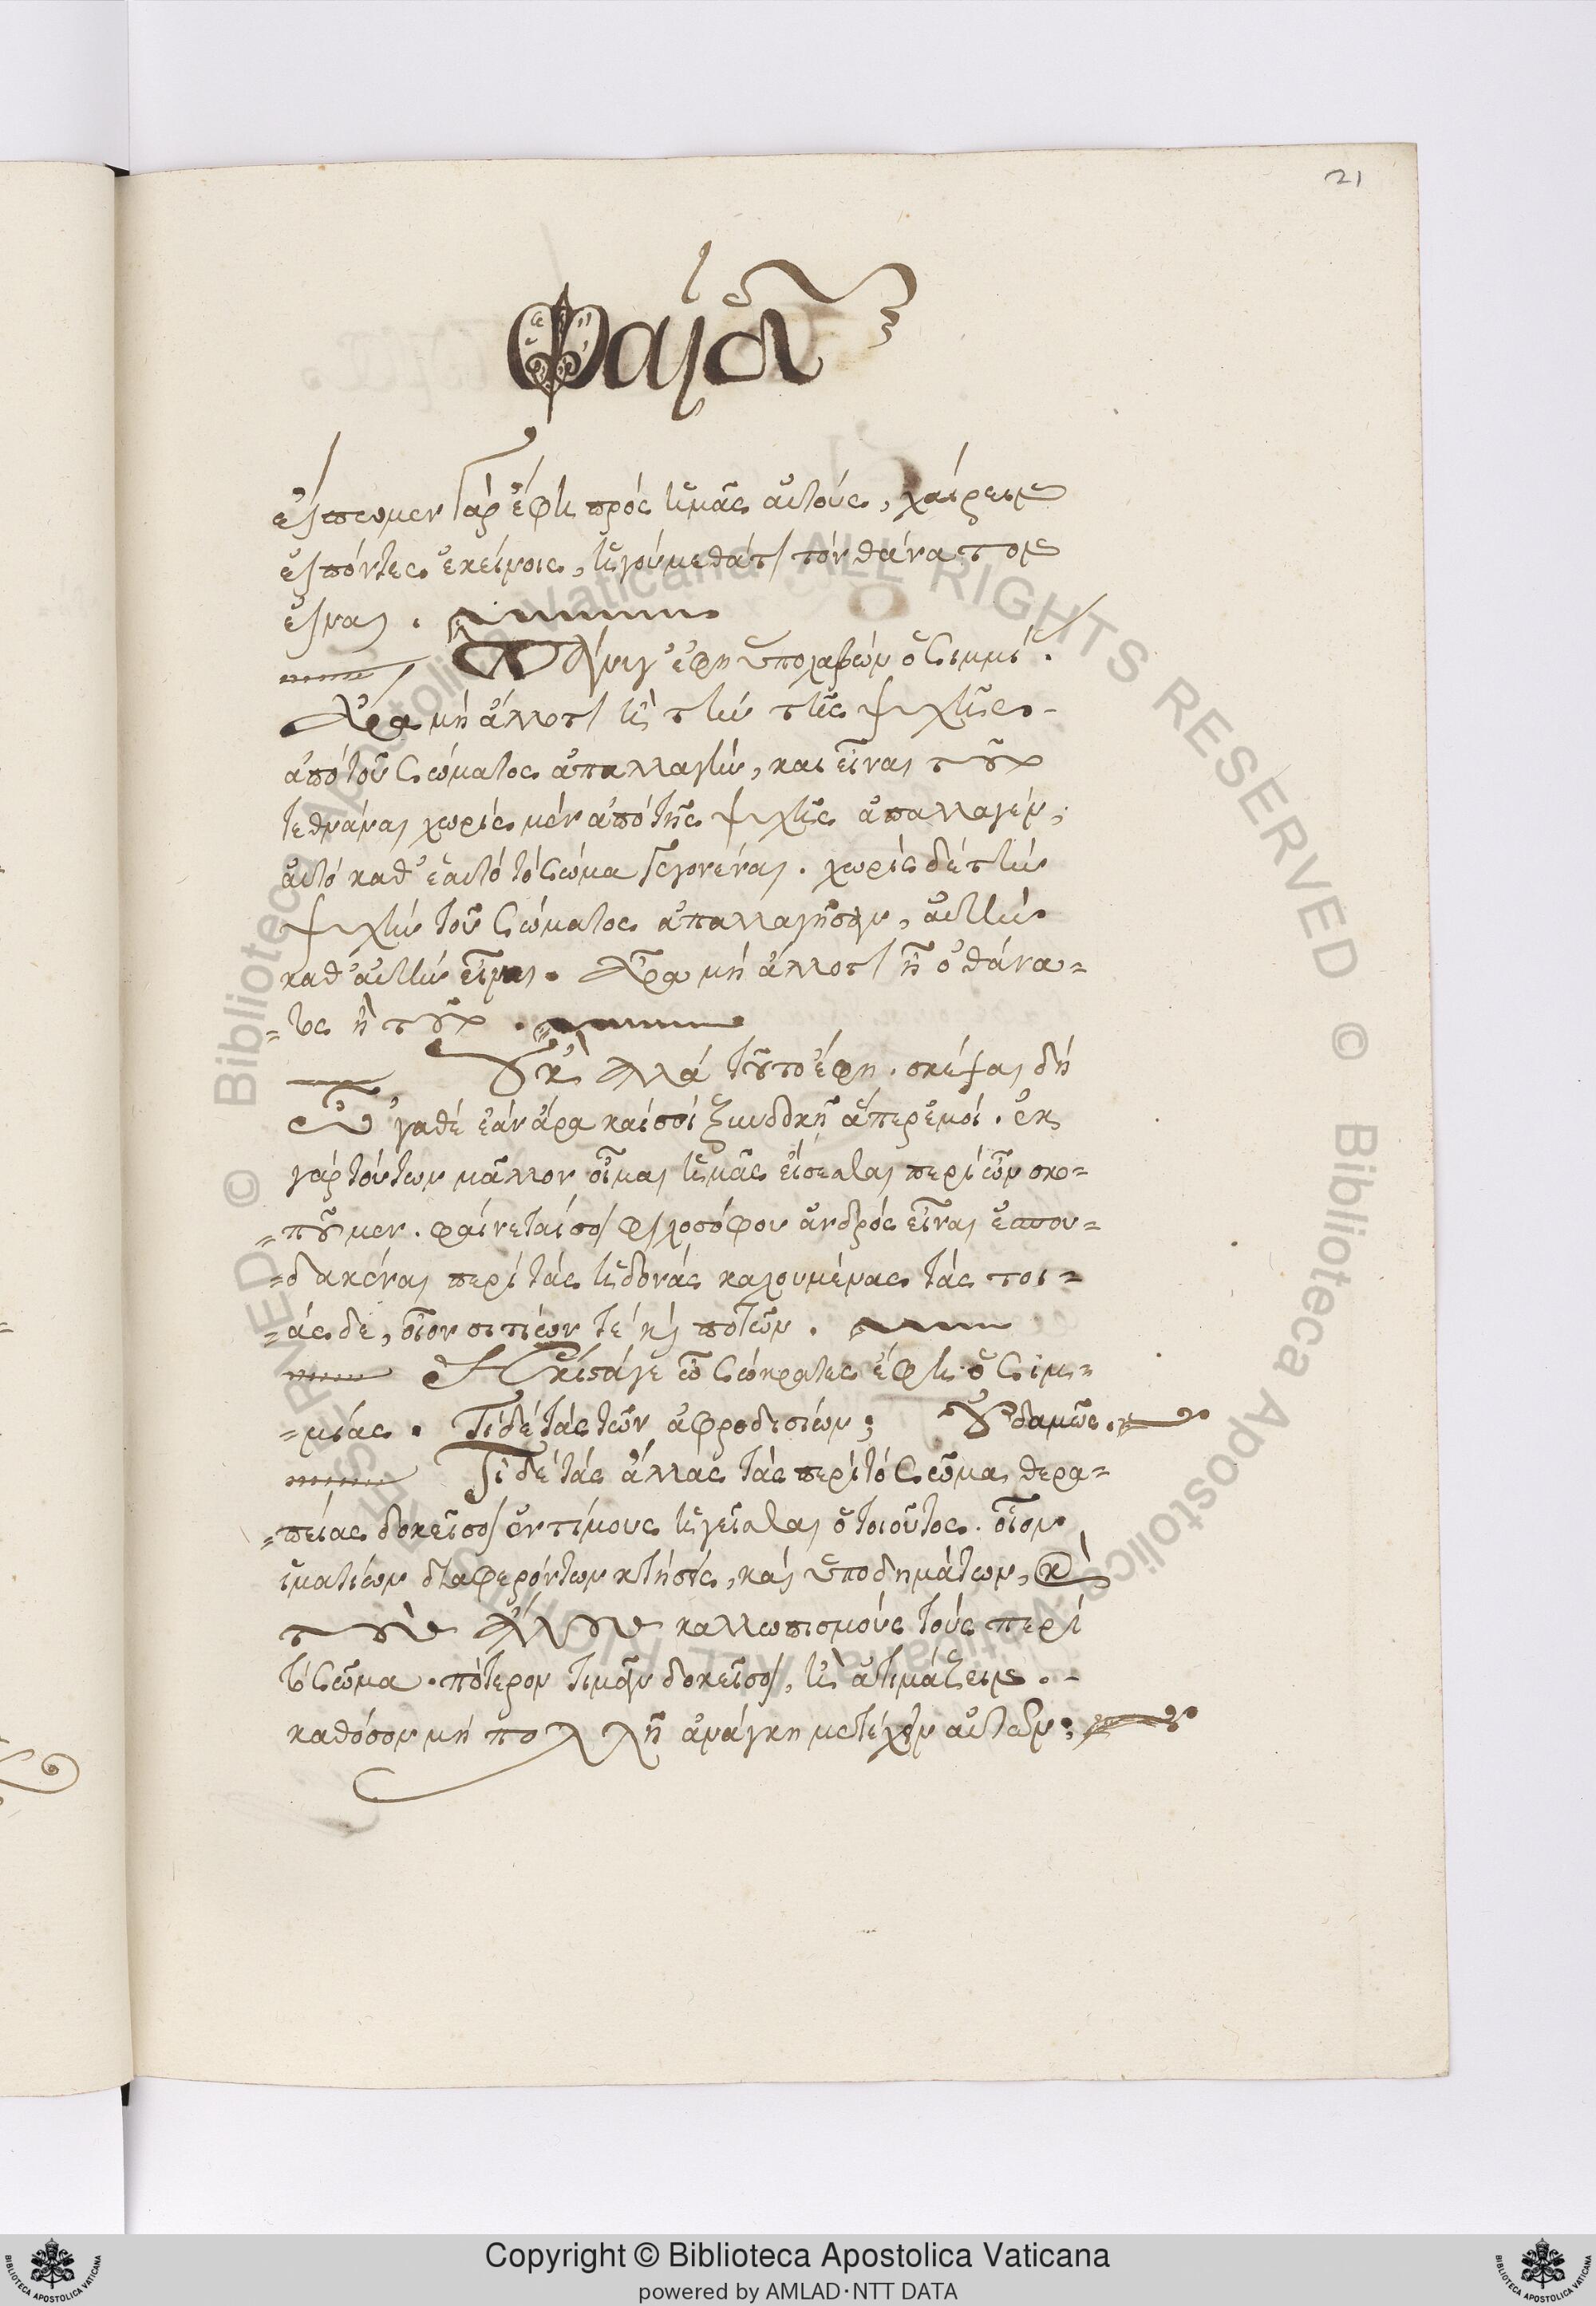 21
Φαίδων
εἴπωμεν γὰρ ἔφη πρὸς ἡμᾶς αὐτούς, χαίρειν
εἰπόντες ἐκείνοις, ἡγούμεθά τι τὸν θάνατον
εἶναι.
Πάνυ γ᾽ ἔφη ὑπολαβὼν ὁ Σιμμί.
Ἆρα μὴ ἄλλο τι ἢ τὴν τῆς ψυχῆς
ἀπὸ τοῦ σώματος ἀπαλλαγὴν, καὶ εἶναι τοῦτο
τεθνάναι χωρὶς μὲν ἀπὸ τῆς ψυχῆς ἀπαλλαγὲν,
αὐτὸ καθ᾽ ἑαυτὸ τὸ σῶμα γεγονέναι. χωρὶς δὲ τὴν
ψυχὴν τοῦ σώματος ἀπαλλαγεῖσαν, αὐτὴν
καθ᾽ αὑτὴν εἶναι. Ἆρα μὴ ἄλλο τι ἢ ὁ θάνα=
=τος ἢ τοῦτο.
Οὐκ ἀλλὰ τοῦτο ἔφη. σκέψαι δὴ
Ὦ ᾽γαθὲ ἐὰν ἄρα καὶ σοὶ ξυνδοκῇ ἅπερ ἐμοί. ἐκ
γὰρ τούτων μᾶλλον οἶμαι ἡμᾶς εἴσεσθαι περὶ ὧν σκο=
=ποῦμεν. φαίνεταί σοι φιλοσόφου ἀνδρὸς εἶναι ἐσπου=
=δακέναι περὶ τὰς ἡδονὰς καλουμένας τὰς τοι=
=άσδε, οἷον σιτίων τε καὶ ποτῶν.
Ἥκιστά γε ὦ Σώκρατες ἔφη ὁ Σιμ=
=μίας. Τί δὲ τὰς τῶν ἀφροδισίων; Οὐδαμῶς.
Τί δὲ τὰς ἄλλας τὰς περὶ τὸ σῶμα θερα=
=πείας δοκεῖ σοι ἐντίμους ἡγεῖσθαι ὁ τοιοῦτος. οἷον
ἱματίων διαφερόντων κτήσεις, καὶ ὑποδημάτων, καὶ
τοὺς ἄλλους καλλωπισμοὺς τοὺς περὶ
τὸ σῶμα. πότερον τιμᾶν δοκεῖ σοι, ἢ ἀτιμάζειν.
καθόσον μὴ πολλὴ ἀνάγκη μετέχειν αὐτῶν;
Copyright © Biblioteca Apostolica Vaticana
powered by AMLAD·NTT DATA